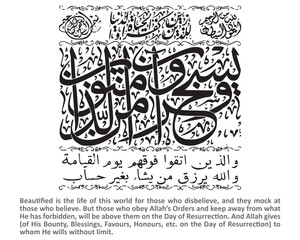 زين للذين كفروا الحياة الدنيا
ويسخرون من الذين آمنوا
والذين اتقوا فوقهم يوم القيامة
والله يرزق من يشاء بغير حساب
Beautified is the life of this world for those who disbelieve, and they mock at
those who believe. But those who obey Allah's Orders and keep away from what
He has forbidden, will be above them on the Day of Resurrection. And Allah gives
(of His Bounty, Blessings, Favours, Honours, etc. on the Day of Resurrection) to
whom He wills without limit.